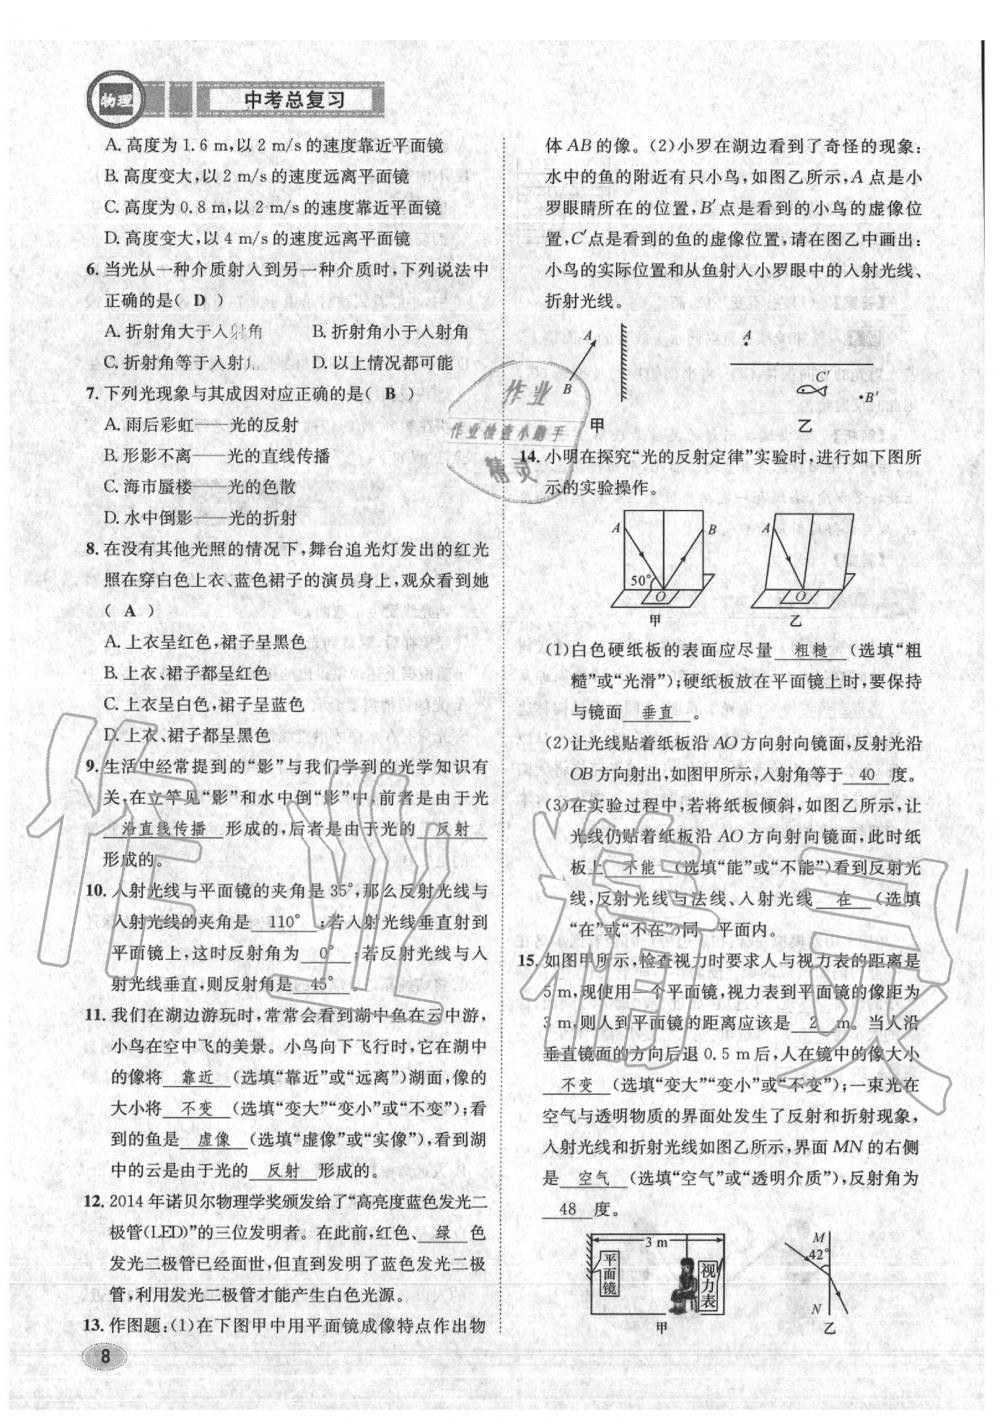 物理
中考总复习
A. 高度为 1.6 m,以 2 m/s 的速度靠近平面镜
B. 高度变大,以 2 m/s 的速度远离平面镜
C. 高度为 0.8 m,以 2 m/s 的速度靠近平面镜
D. 高度变大,以 4 m/s 的速度远离平面镜
6. 当光从一种介质射入到另一种介质时,下列说法中
正确的是( D )
A. 折射角大于入射角 B. 折射角小于入射角
C. 折射角等于入射 D. 以上情况都可能
7. 下列光现象与其成因对应正确的是( B )
A. 雨后彩虹——光的反射
B. 形影不离——光的直线传播
C. 海市蜃楼——光的色散
D. 水中倒影——光的折射
8. 在没有其他光照的情况下,舞台追光灯发出的红光
照在穿白色上衣、蓝色裙子的演员身上,观众看到她
( A )
A. 上衣呈红色,裙子呈黑色
B. 上衣、裙子都呈红色
C. 上衣呈白色,裙子呈蓝色
D. 上衣、裙子都呈黑色
9. 生活中经常提到的“影”与我们学到的光学知识有
关,在立竿见“影”和水中倒“影”中,前者是由于光
沿直线传播 形成的,后者是由于光的 反射
形成的。
10. 入射光线与平面镜的夹角是 35°,那么反射光线与
入射光线的夹角是 110° ;若入射光线垂直射到
平面镜上,这时反射角为 0° ;若反射光线与入
射光线垂直,则反射角是 45° 。
11. 我们在湖边游玩时,常常会看到湖中鱼在云中游,
小鸟在空中飞的美景。小鸟向下飞行时,它在湖中
的像将 靠近 (选填“靠近”或“远离”)湖面,像的
大小将 不变 (选填“变大”“变小”或“不变”);看
到的鱼是 虚像 (选填“虚像”或“实像”),看到湖
中的云是由于光的 反射 形成的。
12. 2014 年诺贝尔物理学奖颁发给了“高亮度蓝色发光二
极管(LED)”的三位发明者。在此前,红色、 绿 色
发光二极管已经面世,但直到发明了蓝色发光二极
管,利用发光二极管才能产生白色光源。
13. 作图题:(1)在下图甲中用平面镜成像特点作出物
8
体 AB 的像。(2)小罗在湖边看到了奇怪的现象:
水中的鱼的附近有只小鸟,如图乙所示,A 点是小
罗眼睛所在的位置,B′点是看到的小鸟的虚像位
置,C′点是看到的鱼的虚像位置,请在图乙中画出:
小鸟的实际位置和从鱼射入小罗眼中的入射光线、
折射光线。
A
B
甲
A
C′
B′
乙
14. 小明在探究“光的反射定律”实验时,进行如下图所
示的实验操作。
A
B
50°
O
甲
A
O
乙
(1)白色硬纸板的表面应尽量 粗糙 (选填“粗
糙”或“光滑”);硬纸板放在平面镜上时,要保持
与镜面 垂直 。
(2)让光线贴着纸板沿 AO 方向射向镜面,反射光沿
OB 方向射出,如图甲所示,入射角等于 40 度。
(3)在实验过程中,若将纸板倾斜,如图乙所示,让
光线仍贴着纸板沿 AO 方向射向镜面,此时纸
板上 不能 (选填“能”或“不能”)看到反射光
线,反射光线与法线、入射光线 在 (选填
“在”或“不在”)同一平面内。
15. 如图甲所示,检查视力时要求人与视力表的距离是
5 m,现使用一个平面镜,视力表到平面镜的像距为
3 m,则人到平面镜的距离应该是 2 m。当人沿
垂直镜面的方向后退 0.5 m 后,人在镜中的像大小
不变 (选填“变大”“变小”或“不变”);一束光在
空气与透明物质的界面处发生了反射和折射现象,
入射光线和折射光线如图乙所示,界面 MN 的右侧
是 空气 (选填“空气”或“透明介质”),反射角为
48 度。
3 m
平面镜
视力表
甲
M
42°
N
乙
作业
作业检查小助手
精灵
作业精灵